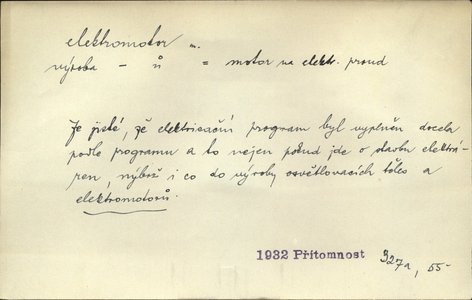 elektromotor m.
výroba – ů = motor na elektr. proud
Je jisté, že elektrisační program byl vyplněn docela
podle programu a to nejen pokud jde o stavbu elektrá-
ren, nýbrž i co do výroby osvětlovacích těles a
elektromotorů.
1932 Přítomnost 327a, 55-